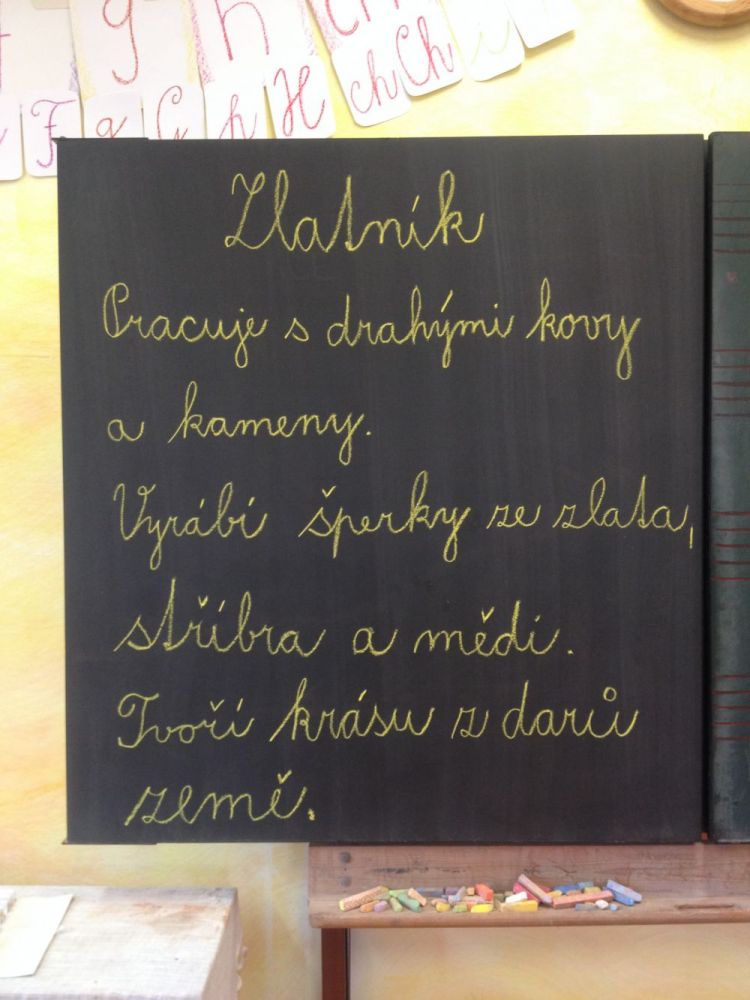 g h ch
F g G h H ch Ch i
Zlatník
Pracuje s drahými kovy
a kameny.
Vyrábí šperky ze zlata,
stříbra a mědi.
Tvoří krásu z darů
země.